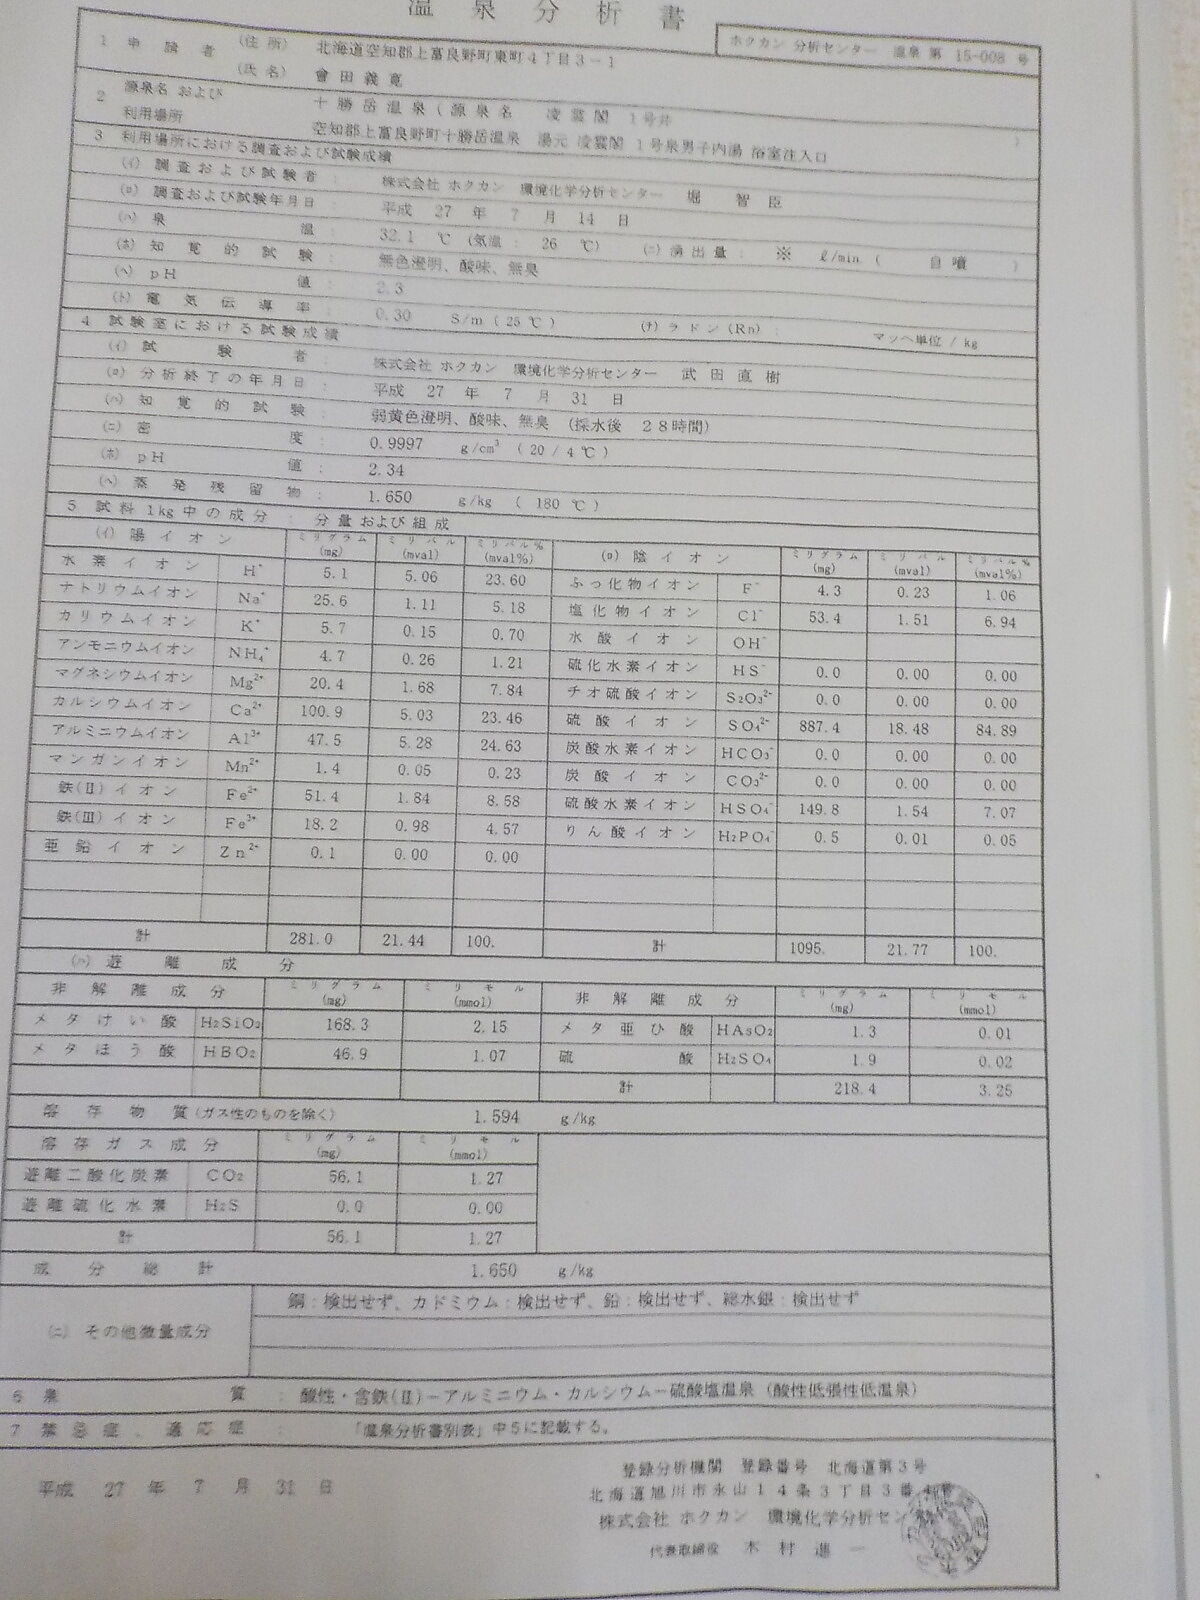 温泉分析書
ホクカン 分析センター 温泉 第 15-008 号
1 申請者 (住所) 北海道空知郡上富良野町東町4丁目3-1
(氏名) 會田義寛
2 源泉名 および 利用場所 十勝岳温泉 (源泉名 凌雲閣 1号井 )
空知郡上富良野町十勝岳温泉 湯元 凌雲閣 1号泉男子内湯 浴室注入口
3 利用場所における調査および試験成績
(イ) 調査および試験者 : 株式会社 ホクカン 環境化学分析センター 堀 智臣
(ロ) 調査および試験年月日 : 平成 27 年 7 月 14 日
(ハ) 泉温 : 32.1 ℃ (気温 : 26 ℃) (ニ) 湧出量 : ※ ℓ/min ( 自噴 )
(ホ) 知覚的試験 : 無色澄明、酸味、無臭
(ヘ) pH値 : 2.3
(ト) 電気伝導率 : 0.30 S/m (25℃) (チ) ラドン (Rn) : マッヘ単位 / kg
4 試験室における試験成績
(イ) 試験者 : 株式会社 ホクカン 環境化学分析センター 武田直樹
(ロ) 分析終了の年月日 : 平成 27 年 7 月 31 日
(ハ) 知覚的試験 : 弱黄色澄明、酸味、無臭 (採水後 28時間)
(ニ) 密度 : 0.9997 g/cm³ ( 20 / 4℃ )
(ホ) pH値 : 2.34
(ヘ) 蒸発残留物 : 1.650 g/kg ( 180 ℃ )
5 試料 1kg 中の成分 : 分量 および 組成
(イ) 陽イオン ミリグラム (mg) ミリバル (mval) ミリバル% (mval%) (ロ) 陰イオン ミリグラム (mg) ミリバル (mval) ミリバル% (mval%)
水素イオン H⁺ 5.1 5.06 23.60 ふっ化物イオン F⁻ 4.3 0.23 1.06
ナトリウムイオン Na⁺ 25.6 1.11 5.18 塩化物イオン Cl⁻ 53.4 1.51 6.94
カリウムイオン K⁺ 5.7 0.15 0.70 水酸イオン OH⁻
アンモニウムイオン NH₄⁺ 4.7 0.26 1.21 硫化水素イオン HS⁻ 0.0 0.00 0.00
マグネシウムイオン Mg²⁺ 20.4 1.68 7.84 チオ硫酸イオン S₂O₃²⁻ 0.0 0.00 0.00
カルシウムイオン Ca²⁺ 100.9 5.03 23.46 硫酸イオン SO₄²⁻ 887.4 18.48 84.89
アルミニウムイオン Al³⁺ 47.5 5.28 24.63 炭酸水素イオン HCO₃⁻ 0.0 0.00 0.00
マンガンイオン Mn²⁺ 1.4 0.05 0.23 炭酸イオン CO₃²⁻ 0.0 0.00 0.00
鉄(Ⅱ)イオン Fe²⁺ 51.4 1.84 8.58 硫酸水素イオン HSO₄⁻ 149.8 1.54 7.07
鉄(Ⅲ)イオン Fe³⁺ 18.2 0.98 4.57 りん酸イオン H₂PO₄⁻ 0.5 0.01 0.05
亜鉛イオン Zn²⁺ 0.1 0.00 0.00
計 281.0 21.44 100. 計 1095. 21.77 100.
(ハ) 遊離成分
非解離成分 ミリグラム (mg) ミリモル (mmol) 非解離成分 ミリグラム (mg) ミリモル (mmol)
メタけい酸 H₂SiO₃ 168.3 2.15 メタ亜ひ酸 HAsO₂ 1.3 0.01
メタほう酸 HBO₂ 46.9 1.07 硫酸 H₂SO₄ 1.9 0.02
計 218.4 3.25
溶存物質 (ガス性のものを除く) 1.594 g/kg
溶存ガス成分 ミリグラム (mg) ミリモル (mmol)
遊離二酸化炭素 CO₂ 56.1 1.27
遊離硫化水素 H₂S 0.0 0.00
計 56.1 1.27
成分総計 1.650 g/kg
(ニ) その他微量成分 銅:検出せず、カドミウム:検出せず、鉛:検出せず、総水銀:検出せず
6 泉質 : 酸性・含鉄(Ⅱ)-アルミニウム・カルシウム-硫酸塩温泉 (酸性低張性低温泉)
7 禁忌症、適応症 : 「温泉分析書別表」中5に記載する。
平成 27 年 7 月 31 日
登録分析機関 登録番号 北海道第3号
北海道旭川市永山14条3丁目3番
株式会社 ホクカン 環境化学分析セン
代表取締役 木村 進一